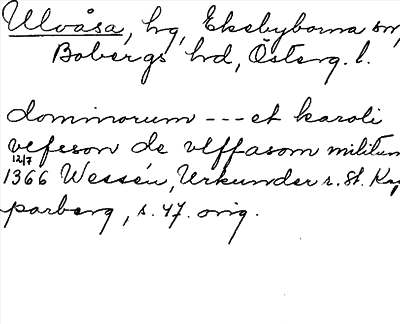 Ulvåsa, hg, Ekebyborna sn,
Bobergs hd, Österg. l.
dominorum --- et karoli
vlfeson de vlffasom militum
12/7
1366 Wessén, Urkunder r. St. Kop
parberg, s. 47. orig.